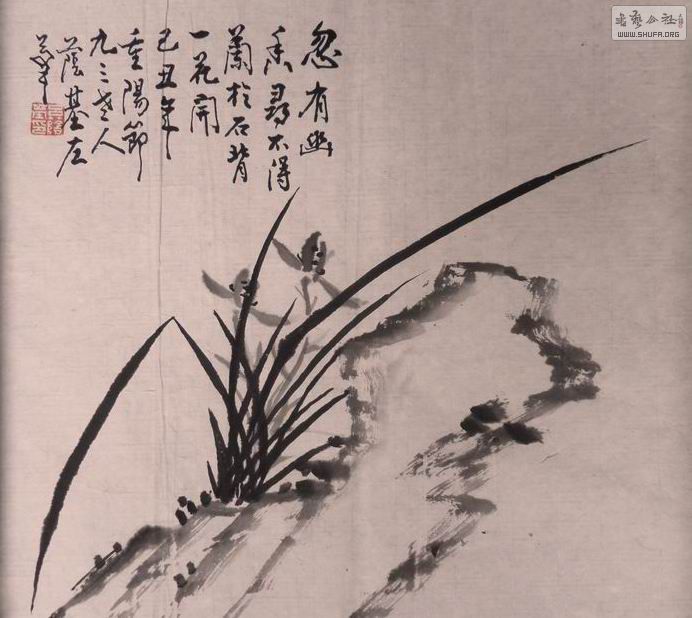 忽有幽
香尋不得
蘭於石背
一花開
己丑年
重陽節
九三老人
蔭基左
書藝公社
WWW.SHUFA.ORG